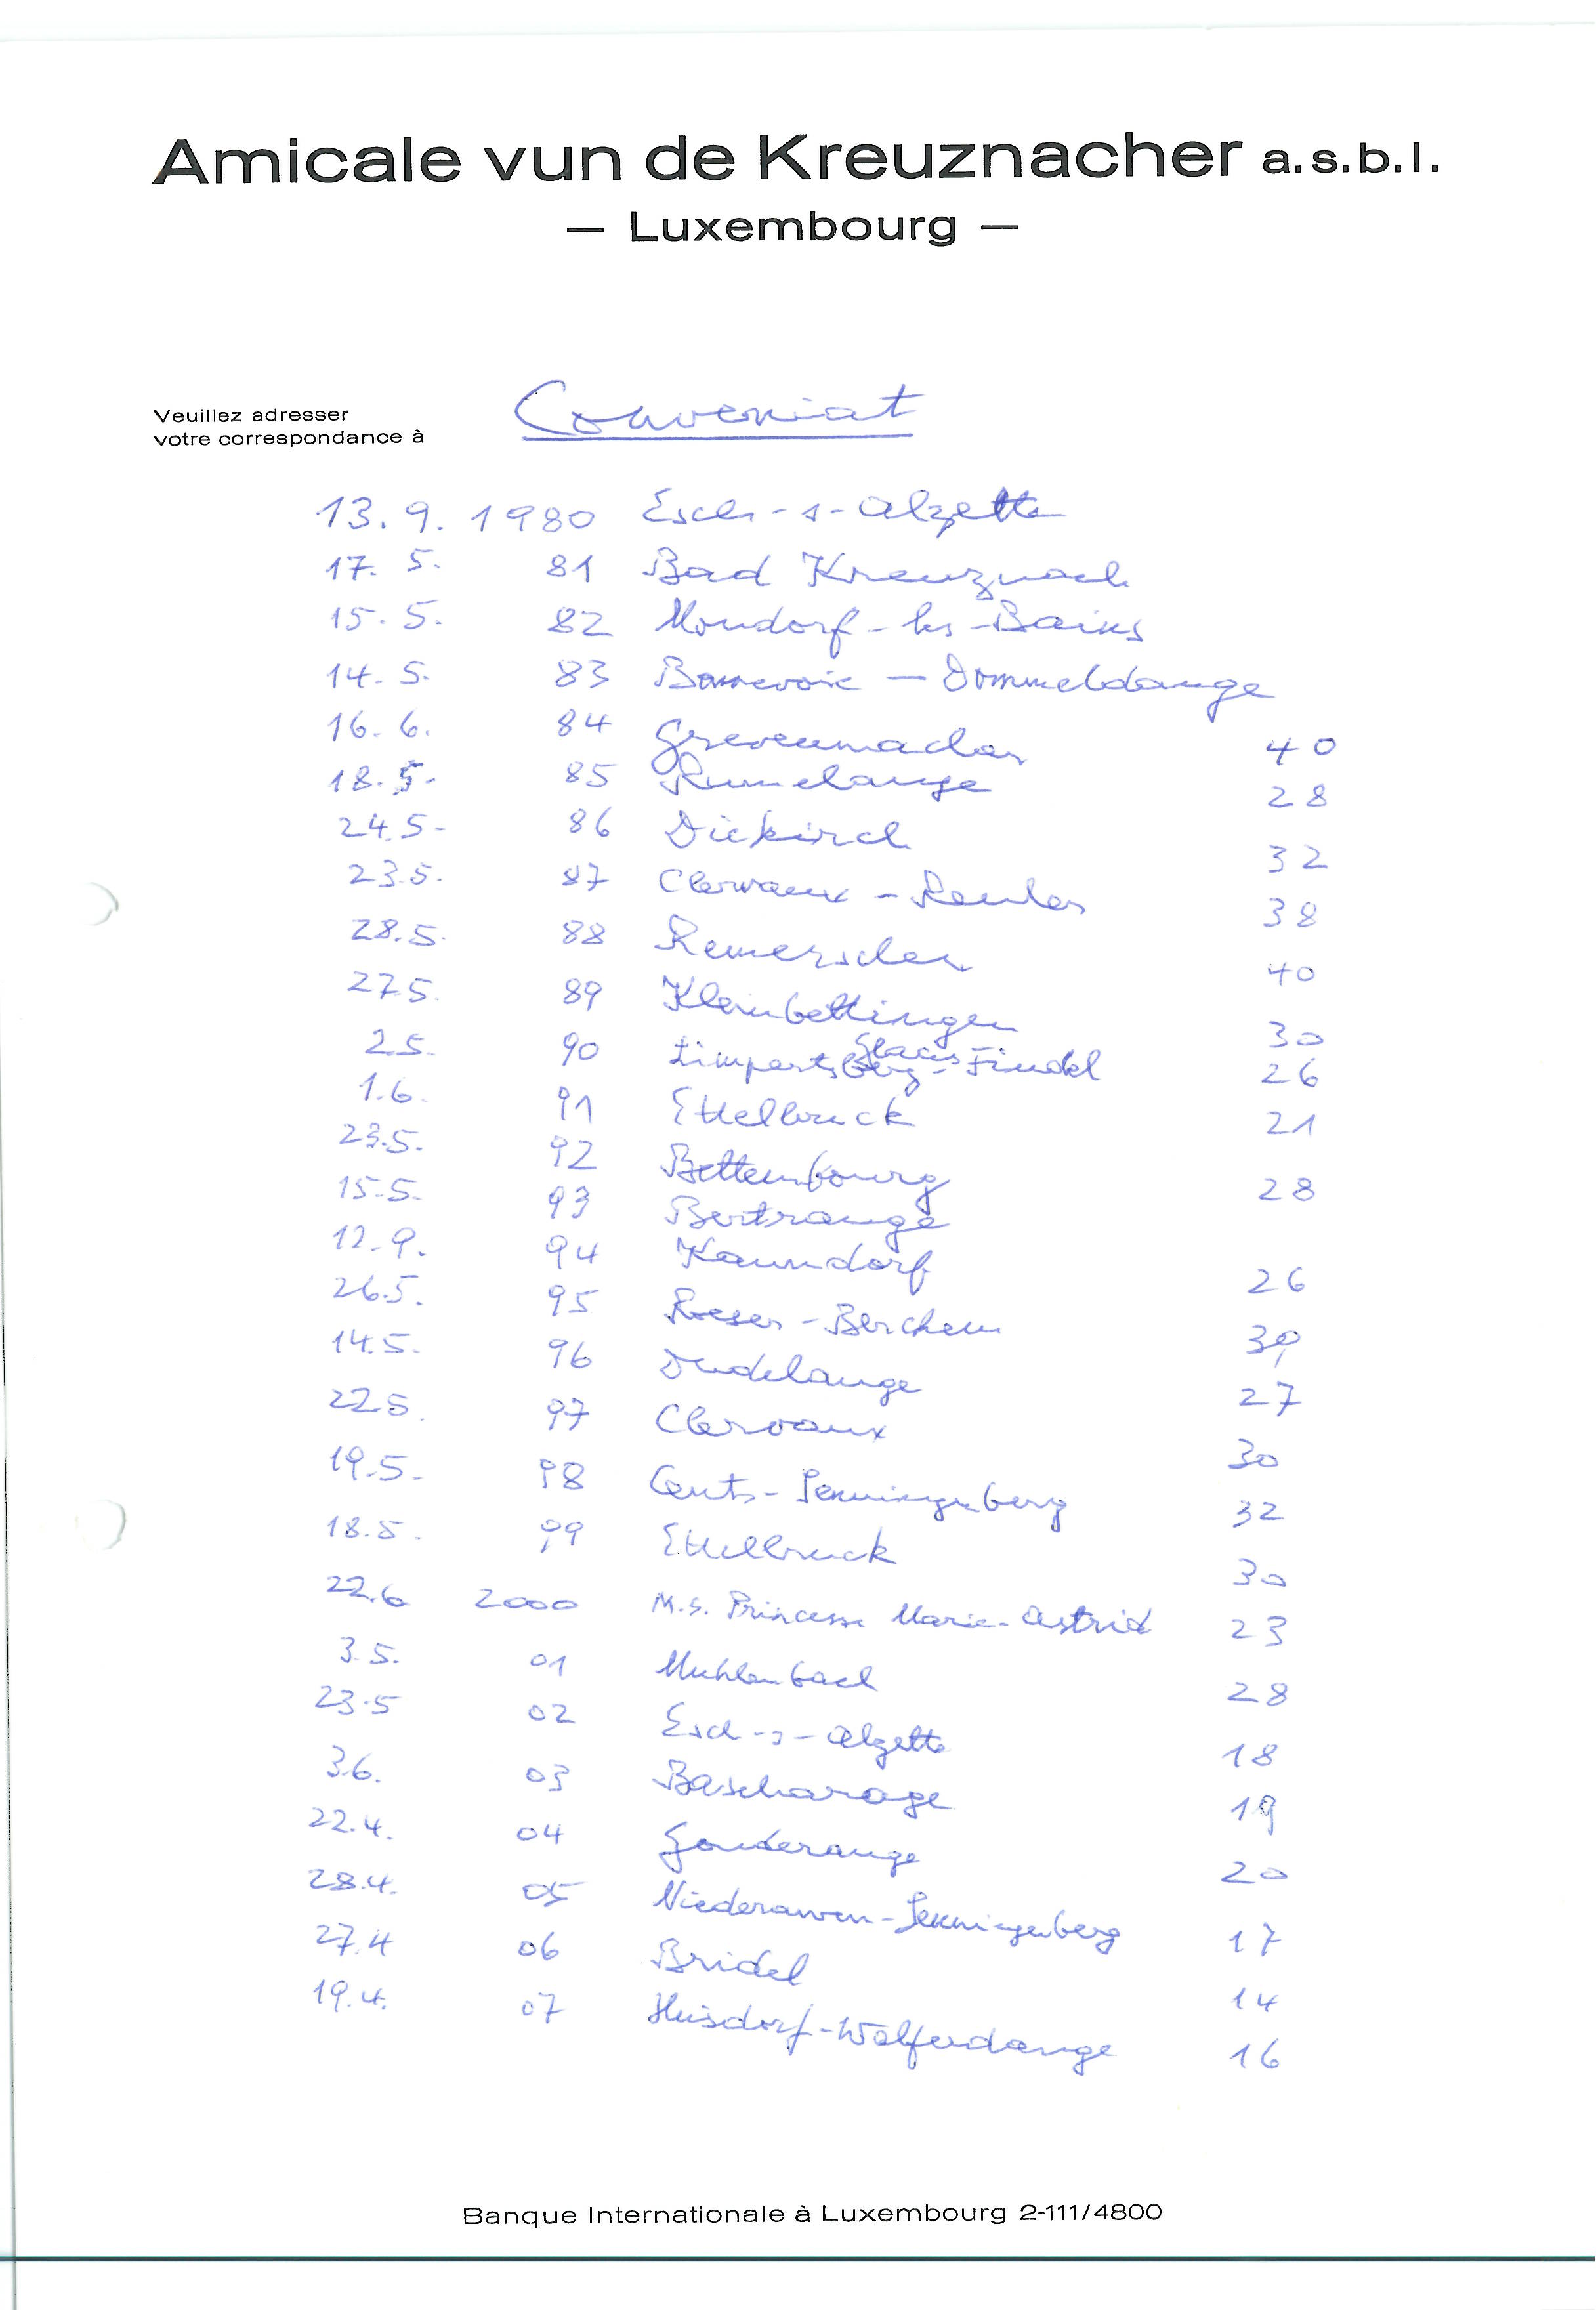 Amicale vun de Kreuznacher a.s.b.l.
— Luxembourg —
Veuillez adresser
votre correspondance à
Conveniat
13. 9. 1980 Esch-s-Alzette
17. 5. 81 Bad Kreuznach
15. 5. 82 Mondorf-les-Bains
14. 5. 83 — Dommeldange
16. 6. 84 Grevenmacher 40
18. 5. 85 Rumelange 28
24.5. 86 Diekirch 32
23.5. 87 Clervaux - Reuler 38
28.5. 88 Remerschen 40
27.5. 89 Kleinbettingen 30
2.5. 90 Limpertsberg Glacis - Findel 26
1.6. 91 Ettelbruck 21
23.5. 92 Bettembourg 28
15.5. 93 Bertrange
12.9. 94 Kaundorf 26
26.5. 95 Roeser - Berchem 30
14.5. 96 Dudelange 27
22.5. 97 Clervaux 30
19.5. 98 Cents - Senningerberg 32
18.5. 99 Ettelbruck 30
22.6 2000 M.S. Princesse Marie-Astrid 23
3.5. 01 Muhlenbach 28
23.5 02 Esch-s-Alzette 18
3.6. 03 Bascharage 19
22.4. 04 Gonderange 20
28.4. 05 Niederanven-Senningerberg 17
27.4 06 Bridel 14
19.4. 07 Heisdorf-Walferdange 16
Banque Internationale à Luxembourg 2-111/4800